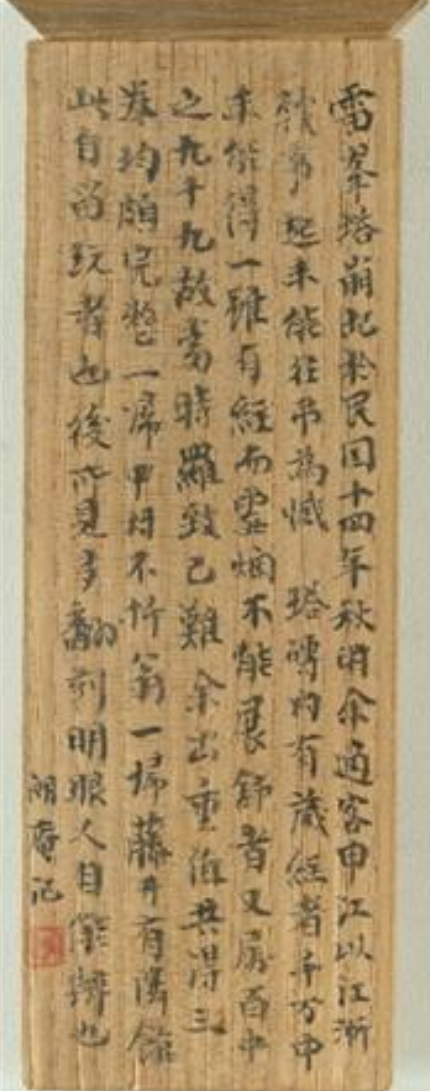 雷峯塔崩圮於民国十四年秋湖余適客申江以江浙
戰事起未能往弔為憾 塔磚内有藏經者千万中
未能得一雖有經而霉烟不能展舒者又居百中
之九十九故當時羅致已難余出重值共得三
卷均頗完整一歸甲州不忻翁一歸藤井有隣館
此自留玩者也後所見多翻刻明眼人自能辨也
湖庵記